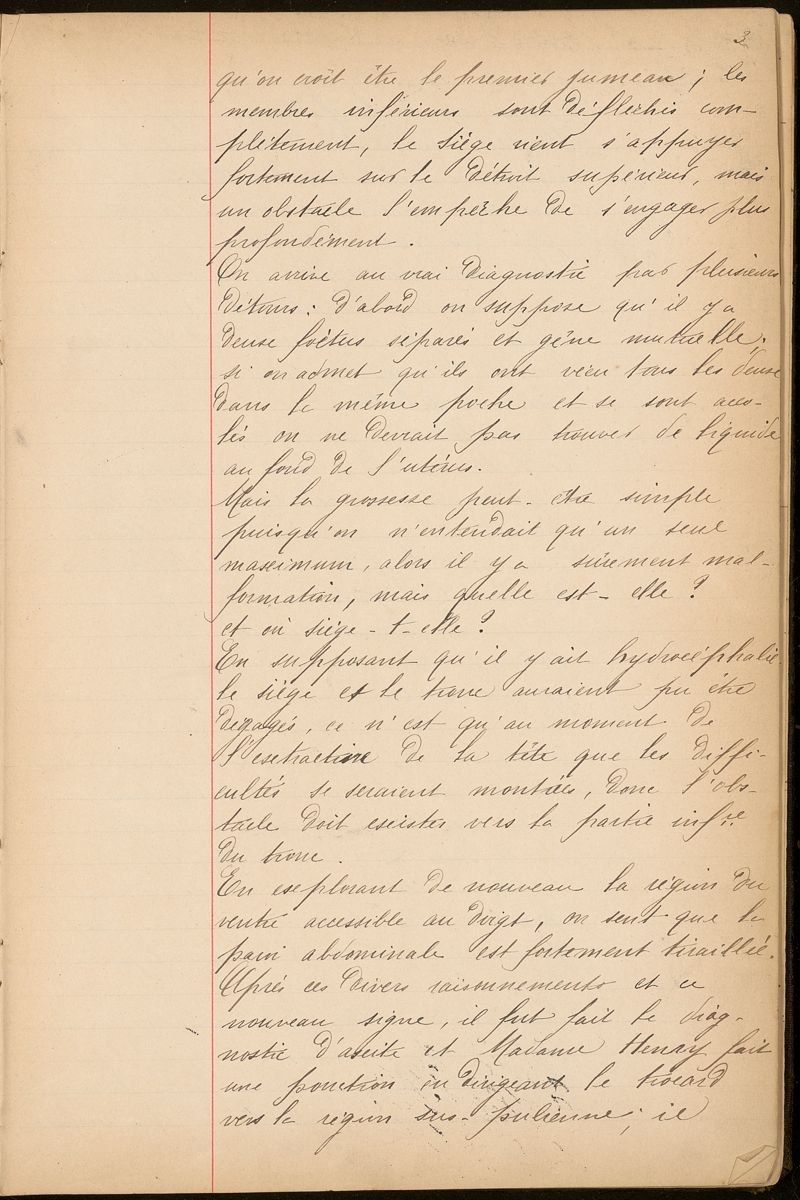 3
qu'on croit être le premier jumeau ; les
membres inférieurs sont défléchis com-
plétement, le siége vient s'appuyer
fortement sur le détroit supérieur, mais
un obstacle l'empêche de s'engager plus
profondément.
On arrive au vrai diagnostic par plusieurs
détours : d'abord on suppose qu'il y a
deux foetus séparés et gêne mutuelle ;
si on admet qu'ils ont vécu tous les deux
dans la même poche et se sont acco-
lés on ne devrait pas trouver de liquide
au fond de l'utérus.
Mais la grossesse peut-être simple
puisqu'on n'entendait qu'un seul
maximum, alors il y a sûrement mal-
formation, mais quelle est-elle ?
et où siége-t-elle ?
En supposant qu'il y ait hydrocéphalie
le siége et le tronc auraient pu être
dégagés, ce n'est qu'au moment de
l'extraction de la tête que les diffi-
cultés se seraient montrées, donc l'obs-
tacle doit exister vers la partie infre
du tronc.
En explorant de nouveau la région du
ventre accessible au doigt, on sent que la
paroi abdominale est fortement tiraillée.
Après ces divers raisonnements et ce
nouveau signe, il fut fait le diag-
nostic d'ascite et Madame Henry fait
une ponction en dirigeant le trocard
vers la région sus-pubienne ; il